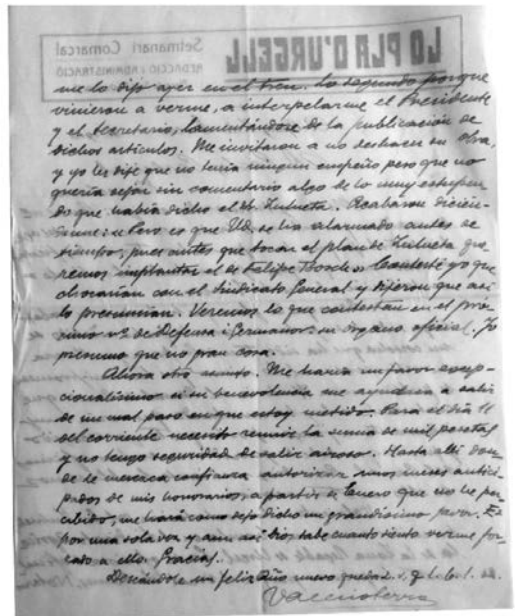 LO PLA D'URGELL
Setmanari Comarcal
REDACCIÓ I ADMINISTRACIÓ
me lo dijo ayer en el tren. Lo segundo porque
vinieron a verme, a interpelarme el Presidente
y el Secretario, lamentándose de la publicación de
dichos artículos. Me invitaron a no deshacer su obra,
y yo les dije que no tenía ningun empeño pero que no
quería dejar sin comentario algo de lo muy estupen-
do que había dicho el Sr. Zulueta. Acabaron dicien-
dome: "Pero es que Ud. se ha alarmado antes de
tiempo, pues antes que tocar el plan de Zulueta que-
remos implantar el de Felipe Bosch." Contesté yo que
chocarían con el Sindicato General y dijeron que así
lo presumían. Veremos lo que contestan en el pró-
ximo nº de Defensa i Germanor: su órgano oficial. Yo
presumo que no gran cosa.
Ahora otro asunto. Me haría un favor excep-
cionalísimo si su benevolencia me ayudara a salir
de un mal paso en que estoy metido. Para el día 11
del corriente necesito reunir la suma de mil pesetas
y no tengo seguridad de salir airoso. Hasta allí don-
de le merezca confianza autorizar unos meses antici-
pados de mis honorarios, a partir de Enero que no he per-
cibido, me hará como dejo dicho un grandísimo favor. Es
por una sola vez y aun así Dios sabe cuanto siento verme for-
zado a ello. Gracias.
Deseándole un feliz Año nuevo queda